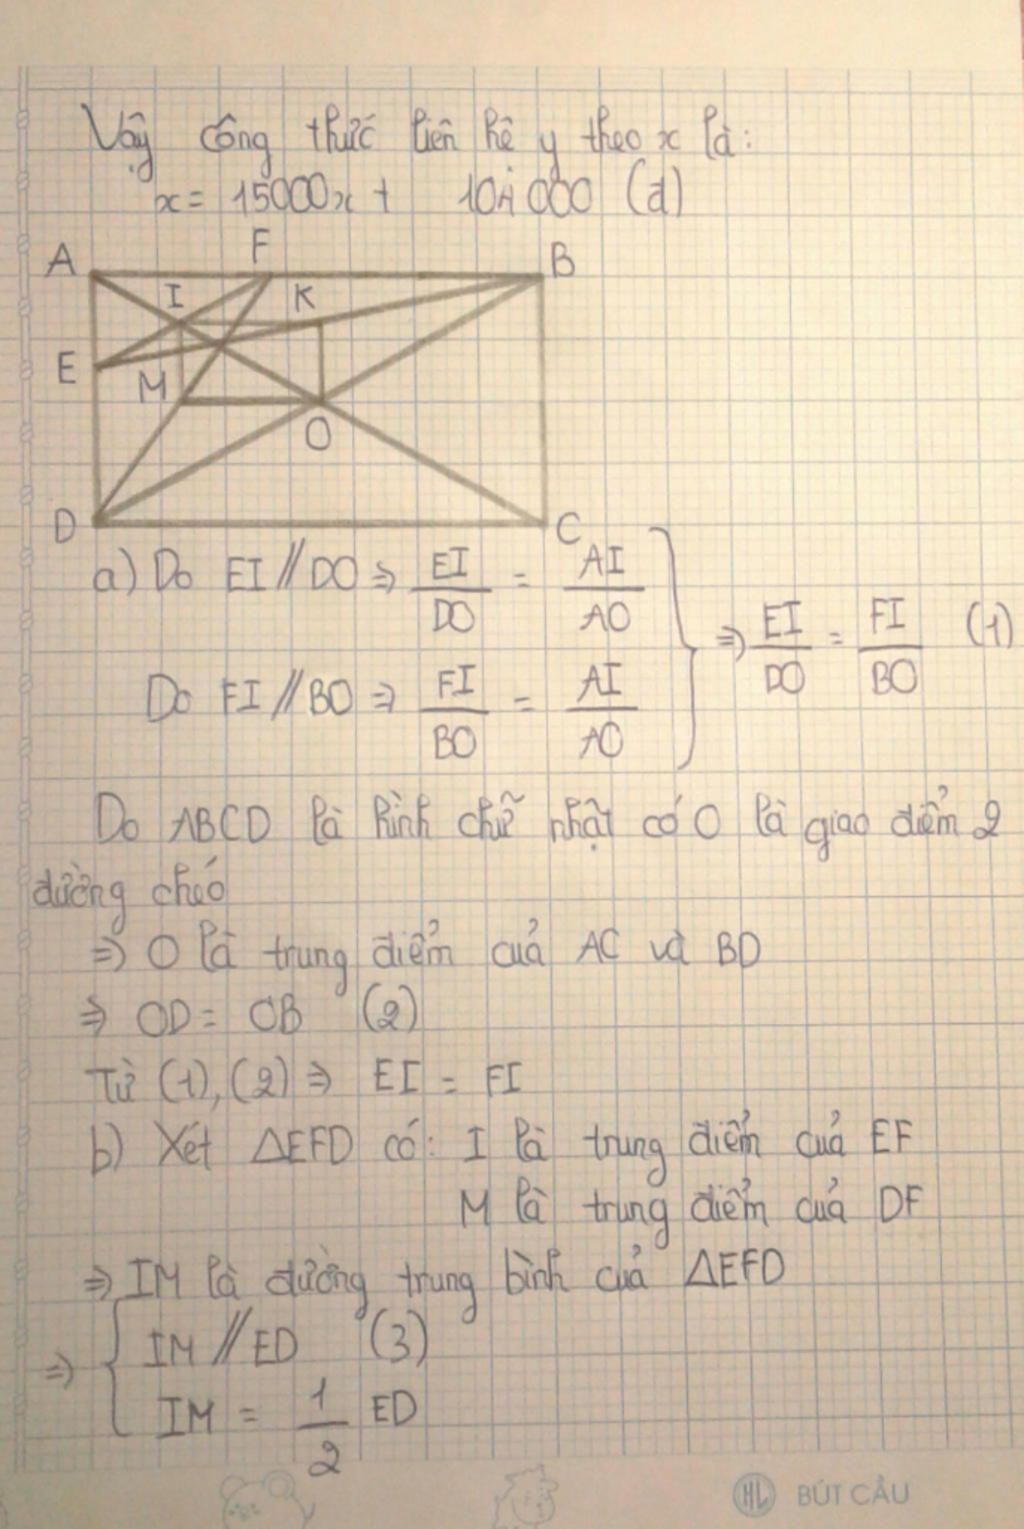 Vậy công thức liên hệ y theo x là:
x = 15000x + 101 000 (d)
A F B
I K
E M
O
D C
a) Do EI // DO ⇒ EI/DO = AI/AO
Do FI // BO ⇒ FI/BO = AI/AO
⇒ EI/DO = FI/BO (1)
Do ABCD là hình chữ nhật có O là giao điểm 2
đường chéo
⇒ O là trung điểm của AC và BD
⇒ OD = OB (2)
Từ (1), (2) ⇒ EI = FI
b) Xét ΔEFD có: I là trung điểm của EF
M là trung điểm của DF
⇒ IM là đường trung bình của ΔEFD
⇒ { IM // ED (3)
IM = 1/2 ED
HL BÚT CẦU